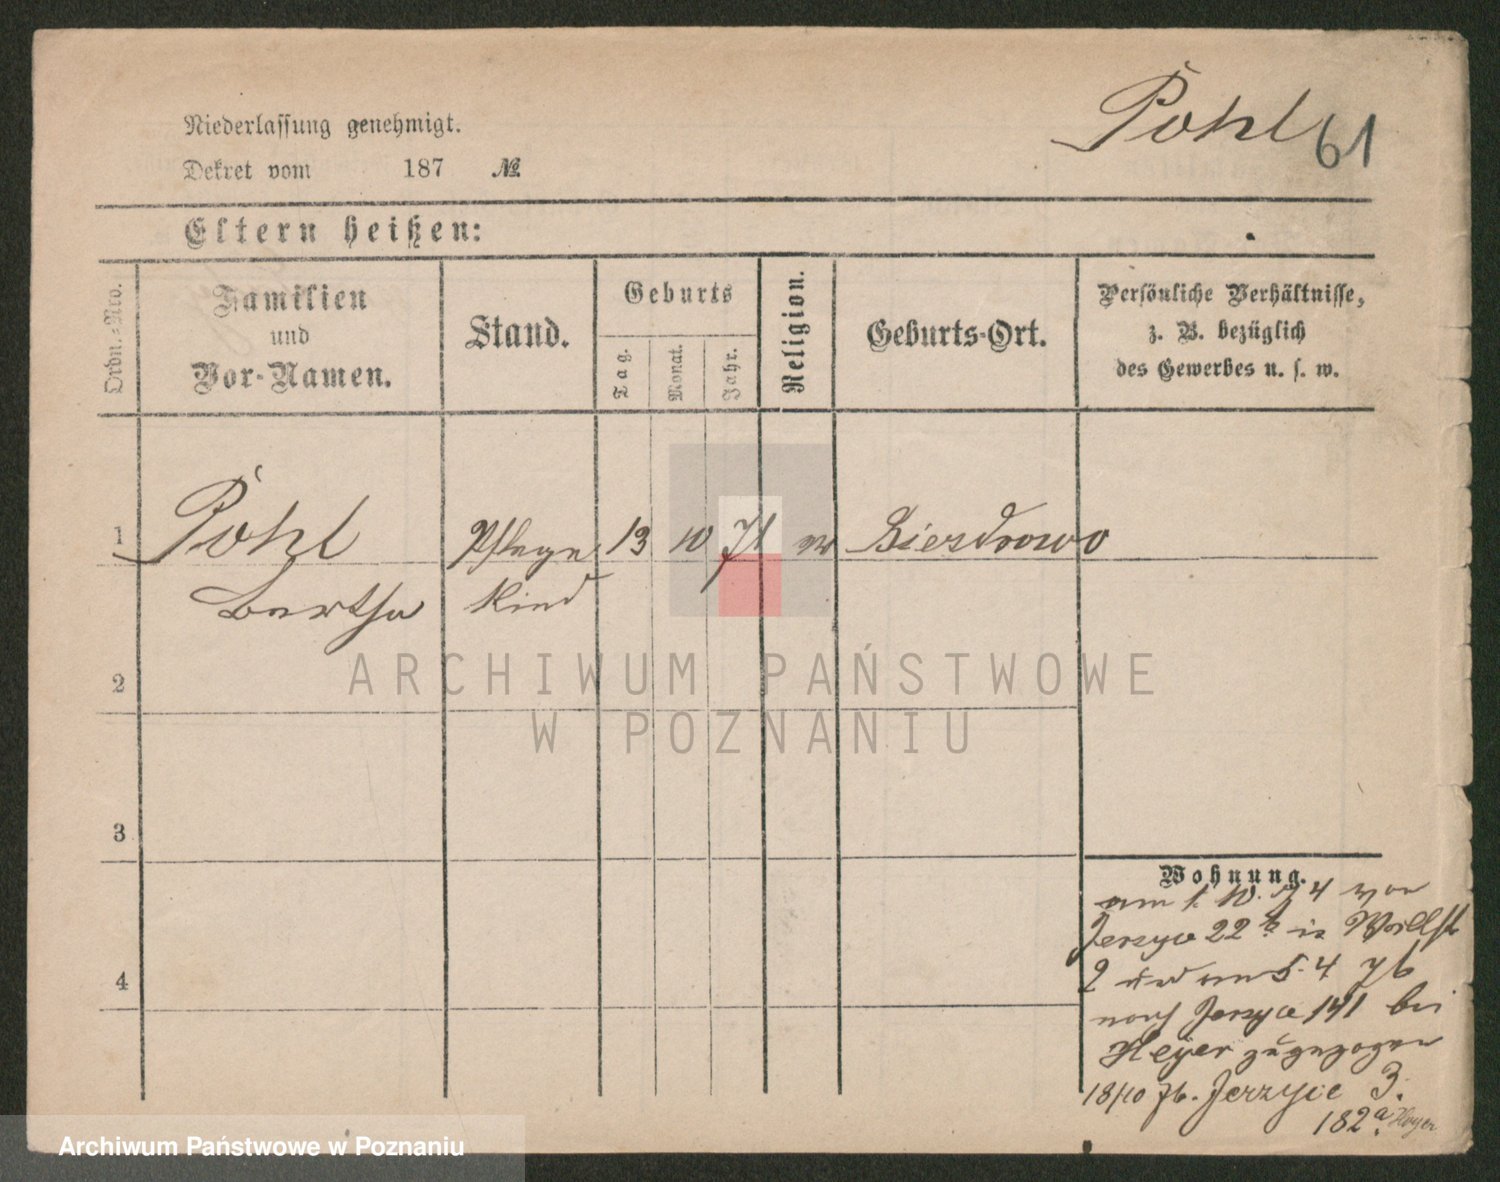 Pohl 61
Niederlassung genehmigt.
Dekret vom 187 №
Eltern heißen:
Ordn.-Nro.
Familien
und
Vor-Namen.
Stand.
Geburts
Tag.
Monat.
Jahr.
Religion.
Geburts-Ort.
Persönliche Verhältnisse,
z. B. bezüglich
des Gewerbes u. s. w.
1 Pohl Pflege 13 10 71 ev Biezdrowo
Bertha Kind
2
3
4
Wohnung.
am 1. 10. 74 von
Jerzyce 22 in Wallst
2 und am 5. 4 76
nach Jerzyce 141 bei
Heyer zugezogen
18/10 76. Jerzyce 3.
182a. Heyer
ARCHIWUM PAŃSTWOWE
W POZNANIU
Archiwum Państwowe w Poznaniu